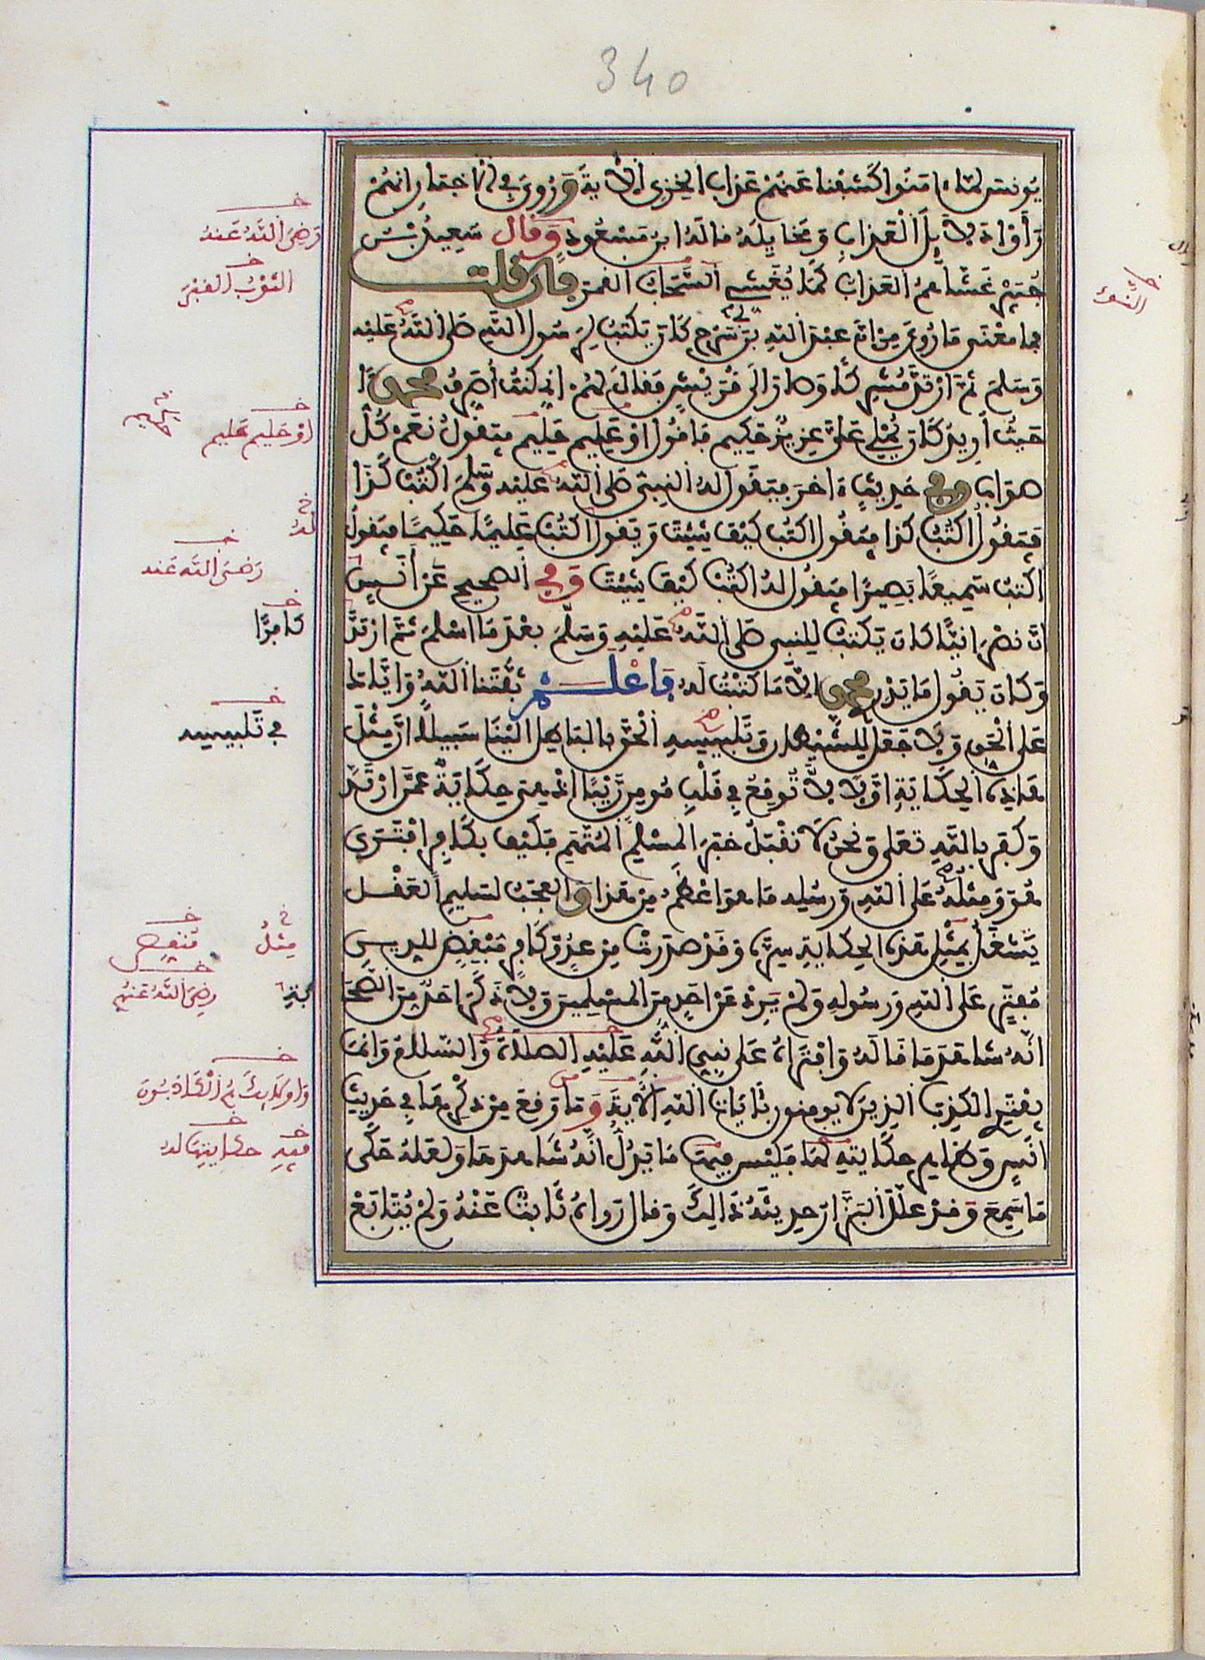 340
يونس لما ءامنوا كشفنا عنهم عذاب الخزي الآية وروي في الاخبار انهم
رأوا دلايل العذاب ومخايله قاله ابن مسعود وقال سعيد بن
جبير غشاهم العذاب كما يغشى السحاب القمر فان قلت
فما معنى ما روي من ان عبد الله بن سرح كان يكتب لرسول الله صلى الله عليه
وسلم ثم ارتد مشركا وصار الى قريش فقال لهم اني كنت اصرف محمدا
حيث اريد كان يملي علي عزيز حكيم فاقول او عليم حكيم فيقول نعم كل
صواب وفي حديث ءاخر فيقول له النبي صلى الله عليه وسلم اكتب كذا
فيقول اكتب كذا فيقول اكتب كيف شيت ويقول اكتب عليما حكيما فيقول
اكتب سميعا بصيرا فيقول له اكتب كيف شيت وفي الصحيح عن انس
ان نصرانيا كان يكتب للنبي صلى الله عليه وسلم بعد ما اسلم ثم ارتد
وكان يقول ما يدري محمد الا ما كتبت له فاعلم ثبتنا الله واياك
على الحق ولا جعل للشيطان وتلبيسه الحق بالباطل الينا سبيلا ان مثل
هذه الحكاية اولا لا توقع في قلب مومن ريبا اذ هي حكاية عمن ارتد
وكفر بالله تعلى ونحن لا نقبل خبر المسلم المتهم فكيف بكافر افترى
هو ومثله على الله ورسله ما هو اعظم من هذا والعجب لسليم العقل
يشغل بمثل هذه الحكاية سره وقد صدرت من عدو كافر مبغض للدين
مفتر على الله ورسوله ولم يرد عن احد من المسلمين ولا ذكر احد من الصحا
انه شاهد ما قاله وافتراه على نبي الله عليه الصلاة والسلام وانما
يفتري الكذب الذين لا يومنون بئايات الله الآية وما وقع من ذكرها في حديث
انس وظاهر حكايته لها فليس فيها ما يدل انه شاهدها ولعله حكى
ما سمع وقد علل البزار حديثه ذالك وقال رواه ثابت عنه ولم يتابع
رضي الله عنه
الثوب القبر
او حليم عليم
له
رضي الله عنه
كافرا
في تلبيسه
مثل
منتقص
رضي الله عنهم
بة
واولايك هم الكاذبون
فيه حكايتها له